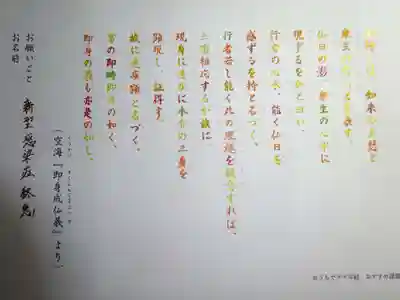 加持とは、如来の大悲と
衆生の信心とを表す
仏日の影、衆生の心水に
現ずるを加と曰い、
行者の心水、能く仏日を
感ずるを持と名づく。
行者若し能く此の理趣を観念すれば、
三密相応するが故に
現身に速疾に本有の三身を
顕現し、証得す。
故に速疾顕と名づく。
常の即時即日の如く、
即身の義も亦是の如し。
(空海『即身成仏義』より)
お願いごと 新型感染症終息
お名前